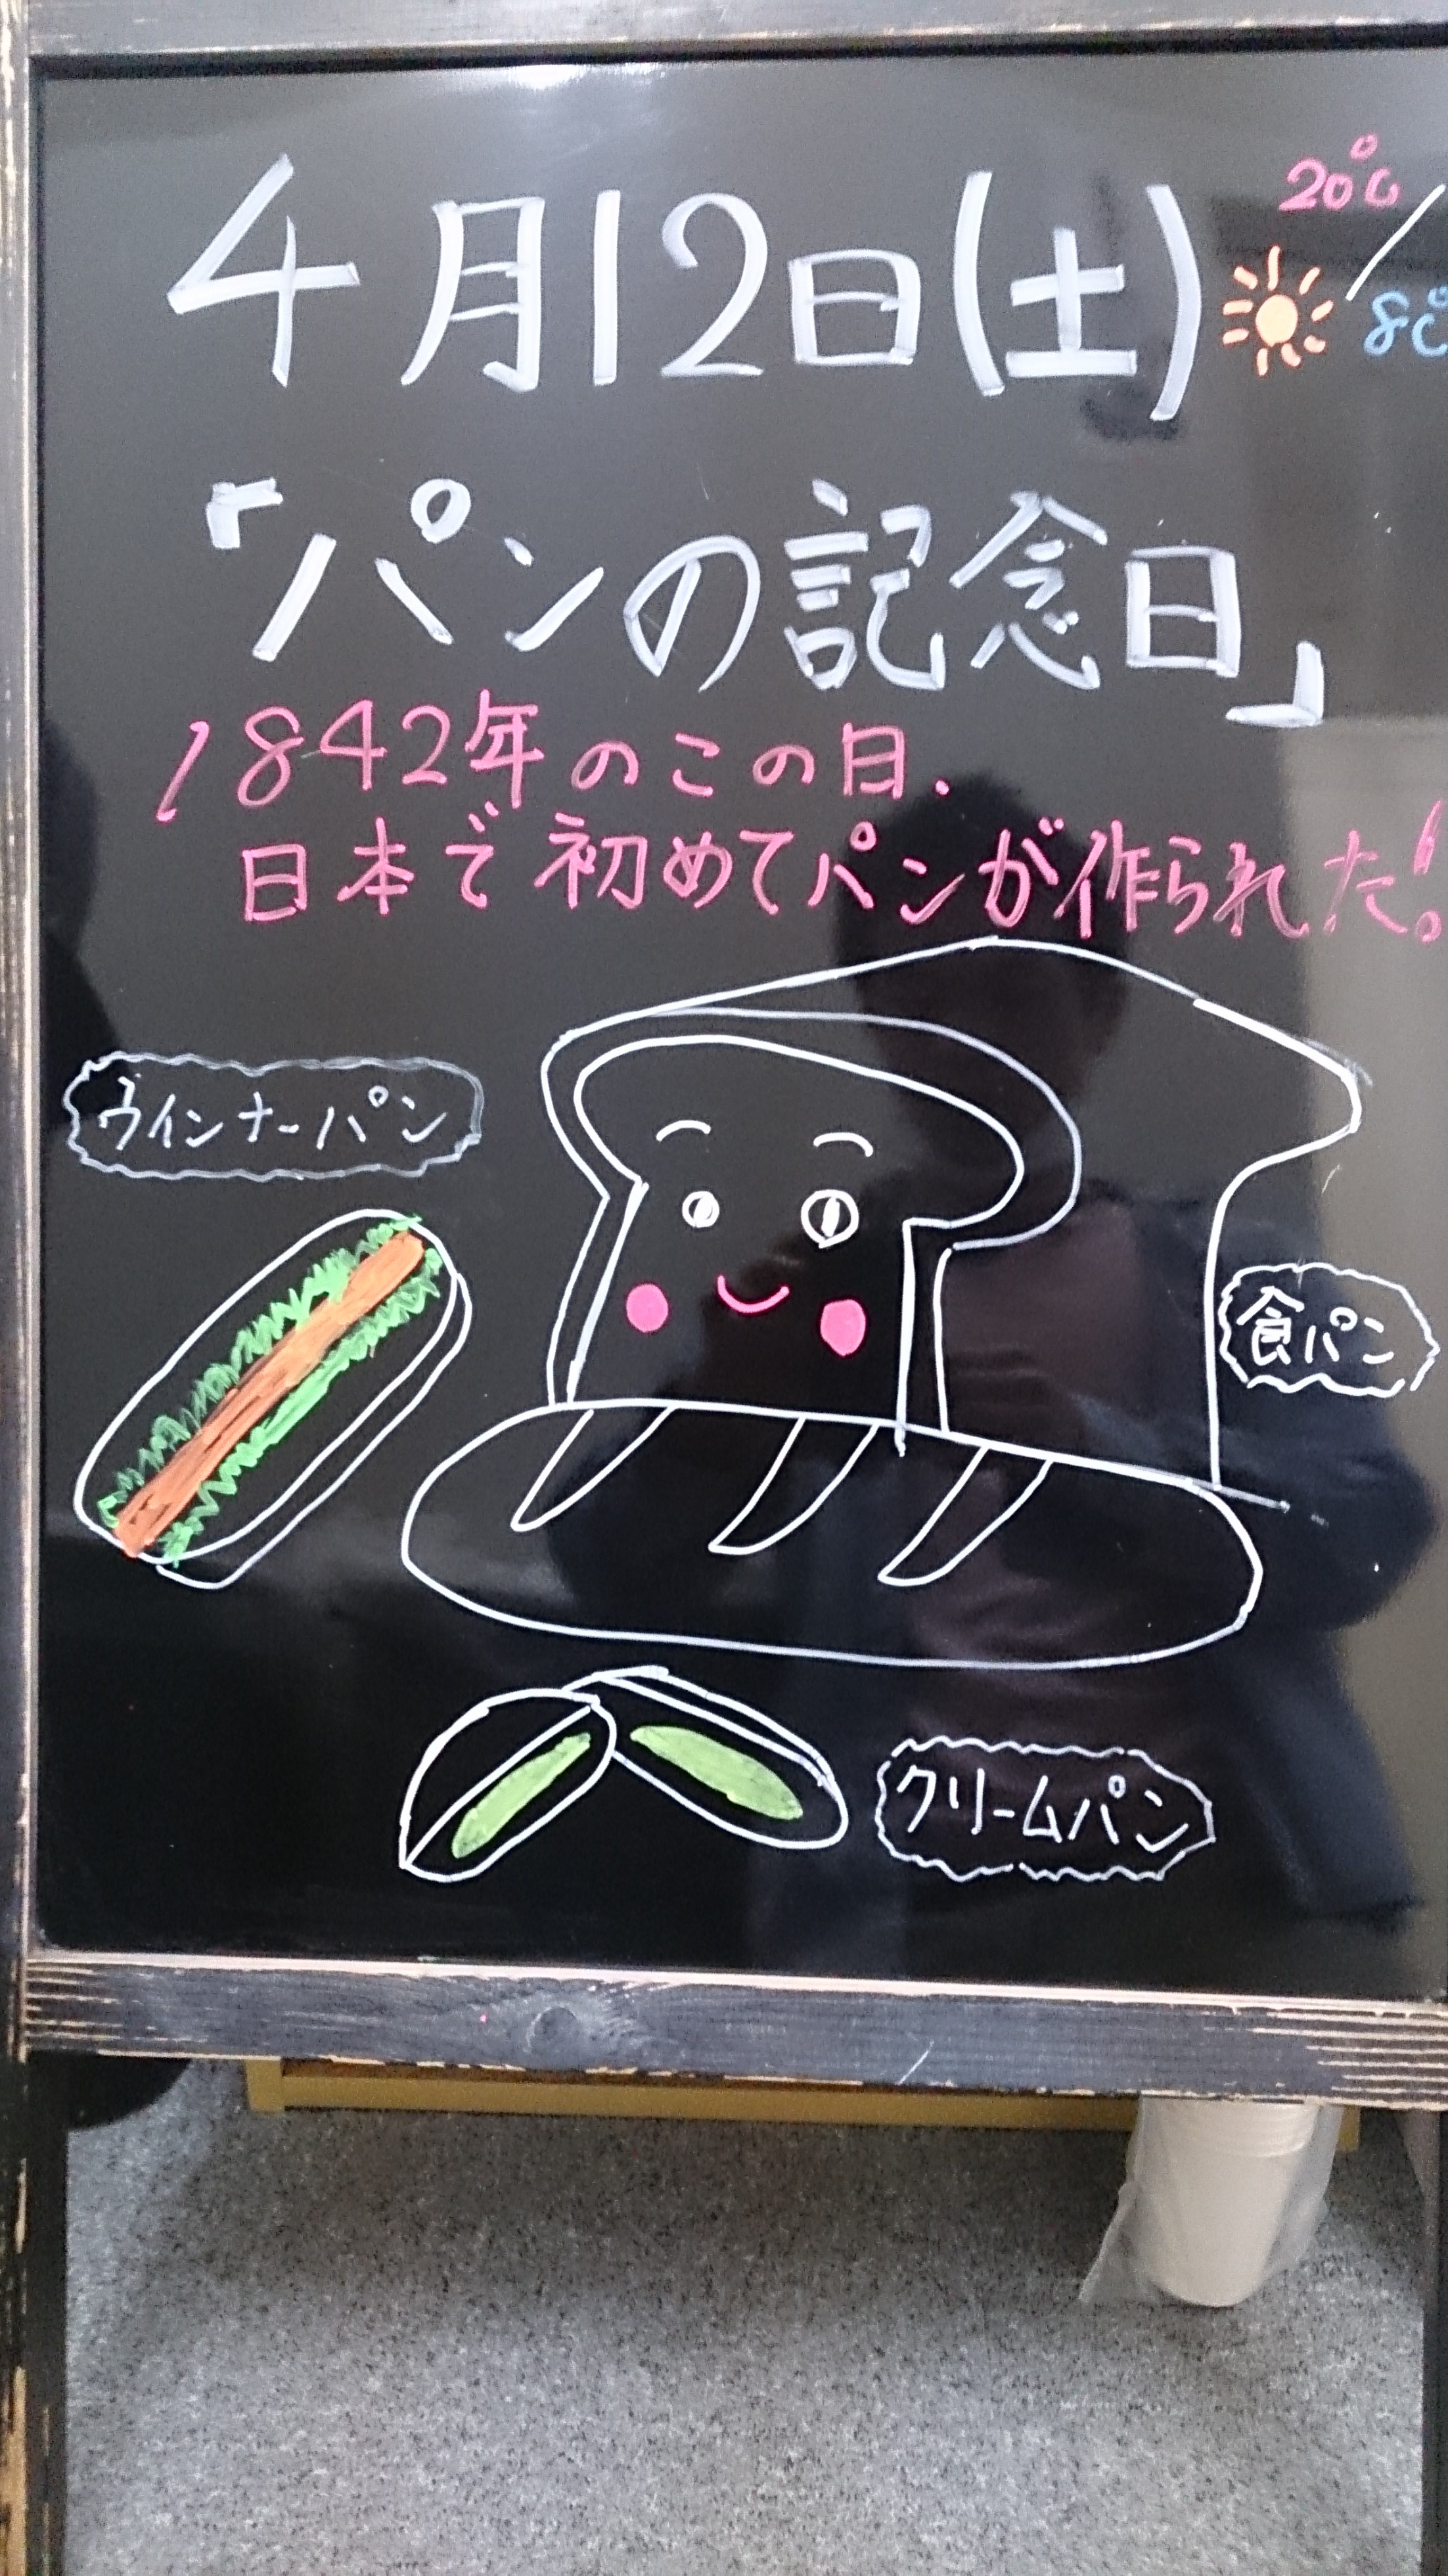 4月12日(土)
20℃/8℃
「パンの記念日」
1842年のこの日.
日本で初めてパンが作られた!
ウインナーパン
食パン
クリームパン